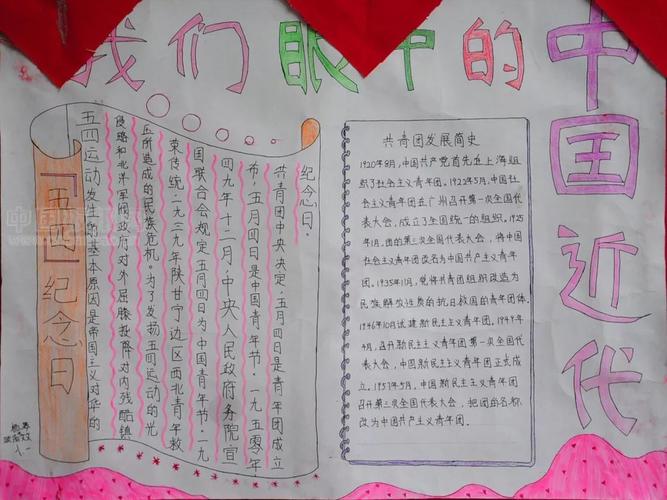 我们眼中的
中国近代
『五四』纪念日
五四运动发生的基本原因是帝国主义对华的
侵略和北洋军阀政府对外屈膝投降对内残酷镇
所造成的民族危机。为了发扬五四运动的光
荣传统,一九三九年陕甘宁边区西北青年救
国联合会规定五月四日为中国青年节。一九
四九年十二月,中央人民政府务院宣
布:五月四日是中国青年节。一九五零年
共青团中央决定,五月四日是青年团成立
纪念日。
共青团发展简史
1920年8月,中国共产党首先在上海组
织了社会主义青年团。1922年5月,中国社
会主义青年团在广州召开第一次全国代
表大会,成立了全国统一的组织。1925
年1月,团的第三次全国代表大会,将中国
社会主义青年团改名为中国共产主义青年
团。1935年11月,党将共青团组织改造为
民族解放性质的抗日救国的青年团体。
1946年10月试建新民主主义青年团。1949年
4月,召开新民主主义青年团第一次全国代
表大会,中国新民主主义青年团正式成
立。1957年5月,中国新民主主义青年团
召开第三次全国代表大会,把团的名称
改为中国共产主义青年团。